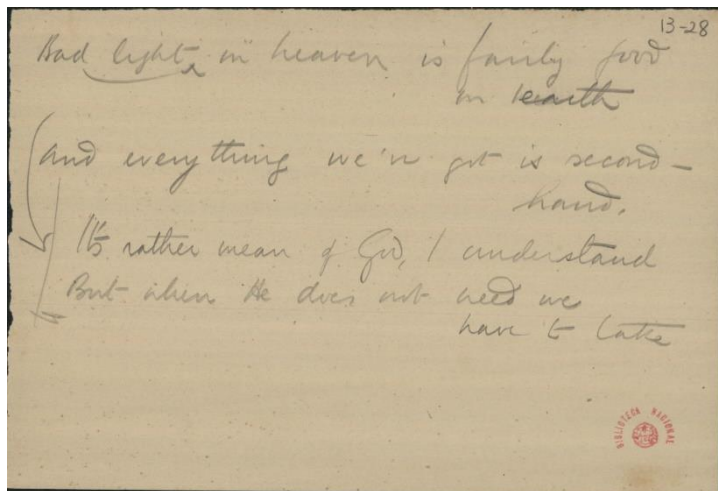 13-28
Bad light in heaven is fairly good
on earth
And everything we've got is second-
hand.
It's rather mean of God, I understand
But when He does not need we
have to take
BIBLIOTECA NACIONAL